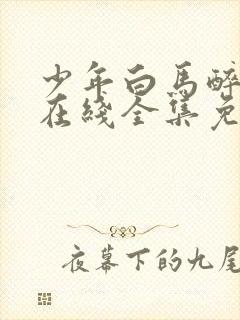 少年白马醉
在綫全集免
夜幕下的九尾